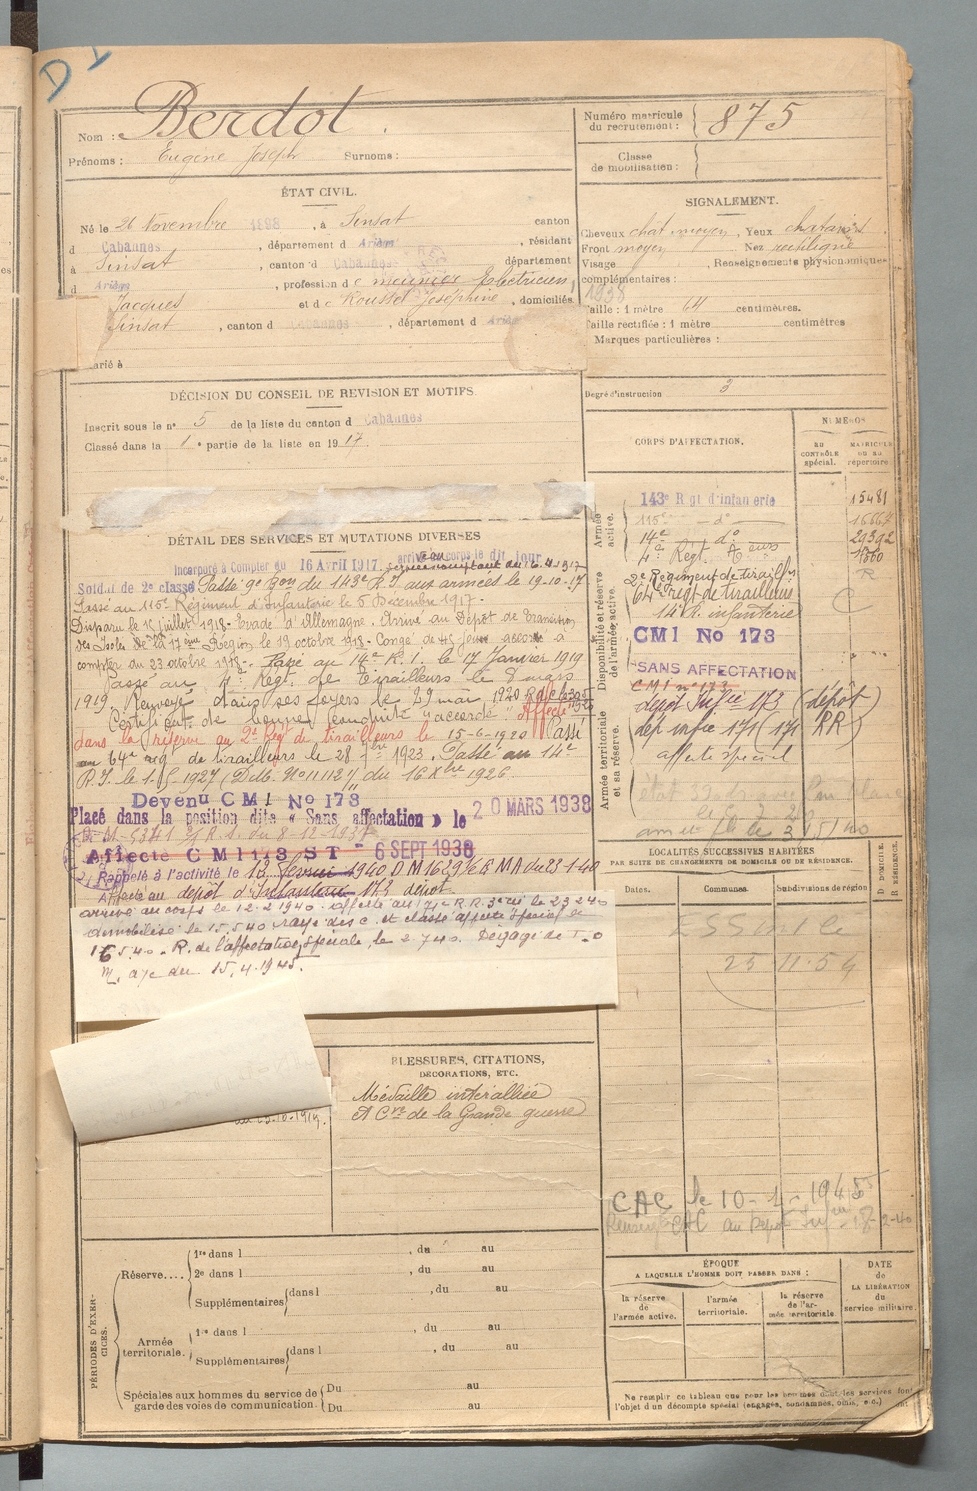 D I
Nom : Berdot.
Prénoms : Eugène Joseph Surnoms :
Numéro matricule
du recrutement : 875
Classe
de mobilisation :
ÉTAT CIVIL.
Né le 26 Novembre 1898, à Sinsat canton
d Cabannes, département d Ariège, résidant
à Sinsat, canton d Cabannes département
d Ariège, profession de meunier Electricien,
Jacques et de Roustel Joséphine, domiciliés
Sinsat, canton d Cabannes, département d Ariège
arié à
SIGNALEMENT.
Cheveux chat moyen, Yeux chatains
Front moyen Nez rectiligne
Visage , Renseignements physionomiques
complémentaires :
1938
Taille : 1 mètre 64 centimètres.
Taille rectifiée : 1 mètre centimètres
Marques particulières :
Degré d'instruction 3
DÉCISION DU CONSEIL DE REVISION ET MOTIFS.
Inscrit sous le n° 5 de la liste du canton d Cabannes
Classé dans la 1e partie de la liste en 1917.
DÉTAIL DES SERVICES ET MUTATIONS DIVERSES
Incorporé à Compter du 16 Avril 1917, arrivé au corps le dit jour
Soldat de 2e classe Passé 9e Bon du 143e R.I aux armées le 19-10-17
Passé au 115e Régiment d'Infanterie le 5 Décembre 1917.
Disparu le 15 juillet 1918. Evadé d'Allemagne. Arrivé au Dépôt de Transition
des Isolés de la 17ème Région le 19 octobre 1918. Congé de 45 jours accordé à
compter du 23 octobre 1918. Passé au 14e R.I. le 17 Janvier 1919
Passé au 4e Régt. de Tirailleurs le 8 mars
1919. Renvoyé dans ses foyers le 29 mai 1920
Certificat de bonne conduite "accordé" Affecté
dans la réserve au 2e Régt de tirailleurs le 15-6-1920 Passé
au 64e rég de tirailleurs le 28 7bre 1923. Passé au 14e
R.I. le 1-5-1927 (Délb. No 11112) du 16 Xbre 1926.
Devenu CMI No 173
Placé dans la position dite « Sans affectation » le 20 MARS 1938
Affecté CMI 173 ST - 6 SEPT 1938
Rappelé à l'activité le 12 février 1940 DM 1629 MA du 23-1-40
Affecté au dépôt d'Infanterie 173 dépôt
arrivé au corps le 12-2-1940. affecté au 171e R.R. le 23 2 40
démobilisé le 15.5.40 rayé des c. et classé affecté spécial le
16.5.40. R. de l'affectation Spéciale, le 2.7.40. Dégagé de
15.4.1945.
CORPS D'AFFECTATION.
NUMÉROS
AU CONTRÔLE spécial.
MATRICULE OU AU répertoire
Armée active.
143e Rgt d'infanterie 15481
115e — do — 16667
14e do 29392
4e Régt. 1860
Disponibilité et réserve de l'armée active.
2e Régiment de tiraills R
64e régt de tirailleurs
14e R. infanterie
CMI No 173
SANS AFFECTATION
CMI n° 173
Armée territoriale et sa réserve.
dépôt Infie 173 (dépôt)
dép infie 171 (171 RR)
affecté spécial
LOCALITÉS SUCCESSIVES HABITÉES
PAR SUITE DE CHANGEMENTS DE DOMICILE OU DE RÉSIDENCE.
Dates. Communes. Subdivisions de région D. DOMICILE. R. RÉSIDENCE.
25 11-54
CAC le 10-1-1945
BLESSURES, CITATIONS,
DÉCORATIONS, ETC.
Médaille interalliée
et Cve de la Grande guerre
PÉRIODES D'EXERCICES.
Réserve....
1re dans l , du au
2e dans l , du au
Supplémentaires dans l , du au
Armée territoriale.
1re dans l , du au
Supplémentaires dans l , du au
Spéciales aux hommes du service de garde des voies de communication.
Du au
Du au
ÉPOQUE
A LAQUELLE L'HOMME DOIT PASSER DANS :
la réserve de l'armée active.
l'armée territoriale.
la réserve de l'armée territoriale
DATE
de
LA LIBÉRATION
du
service militaire.
Ne remplir ce tableau que pour les hommes dont les services font
l'objet d'un décompte spécial (engagés, condamnés, omis, etc.)